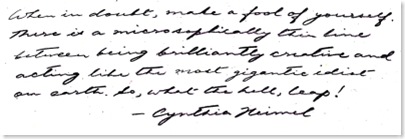 When in doubt, make a fool of yourself.
There is a microscopically thin line
between being brilliantly creative and
acting like the most gigantic idiot
on earth. So, what the hell, leap!
— Cynthia Heimel